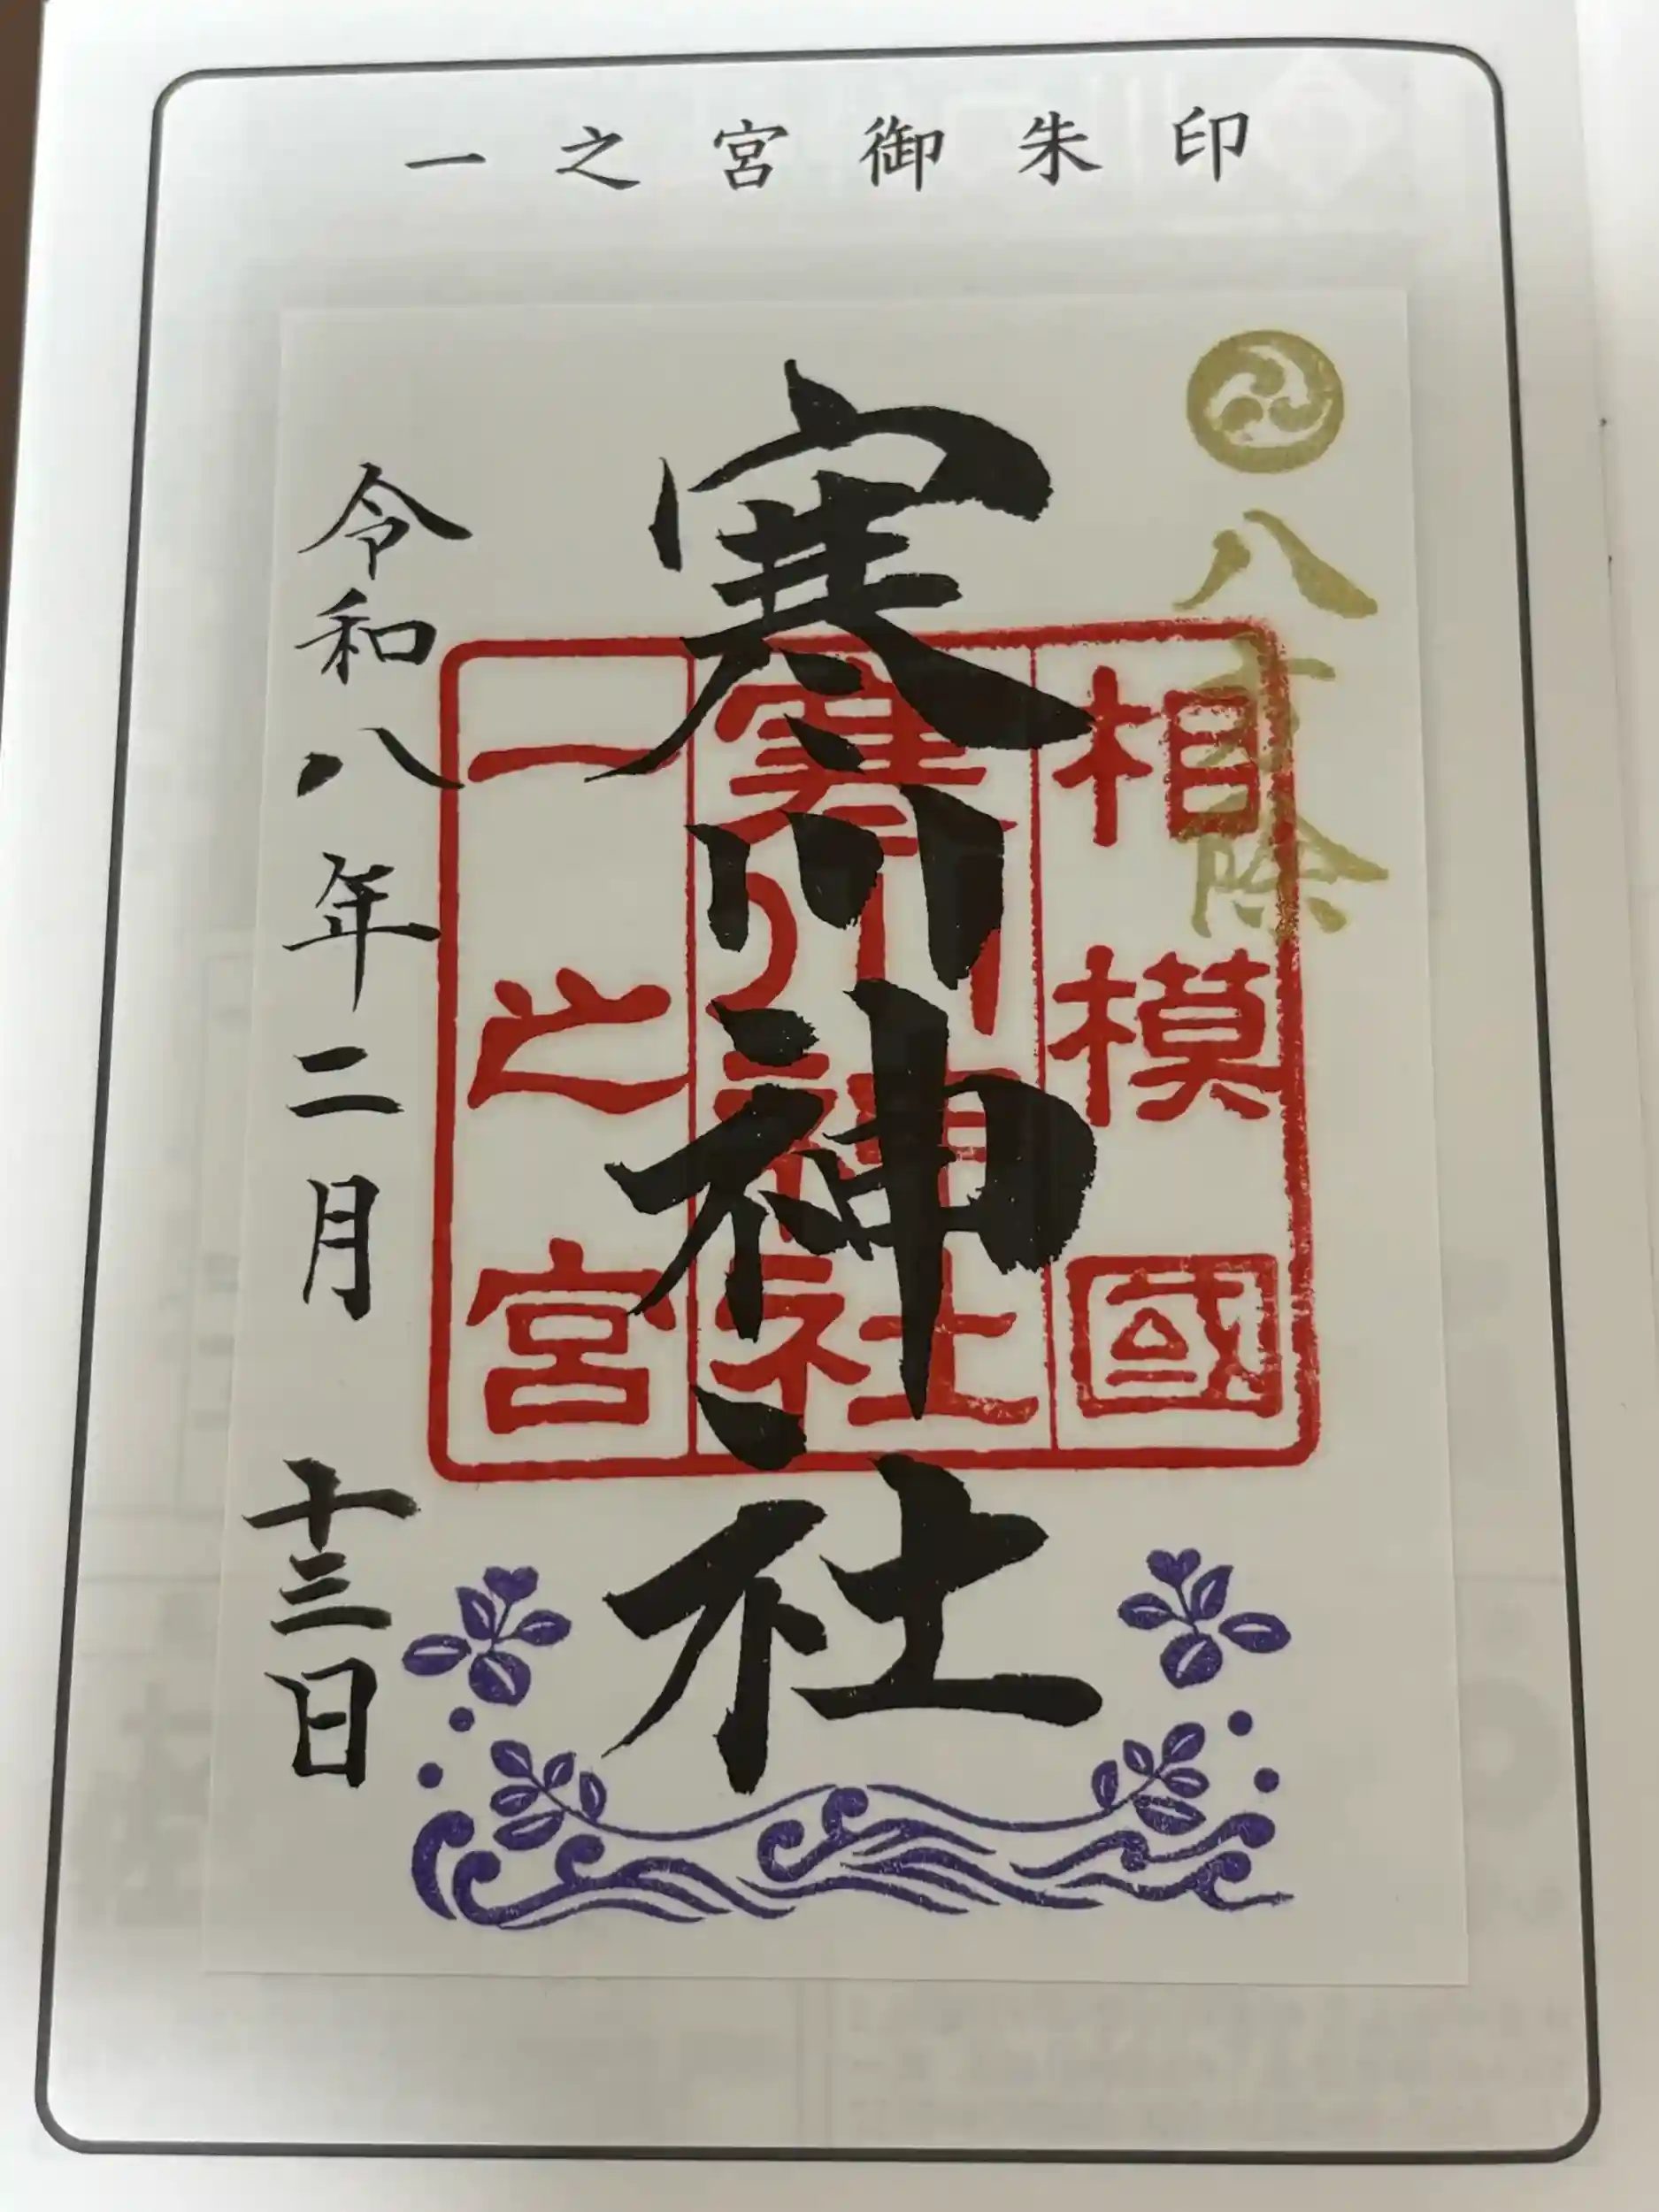 一之宮御朱印
八方除
相模國
寒川神社
一之宮
寒川神社
令和八年二月十三日